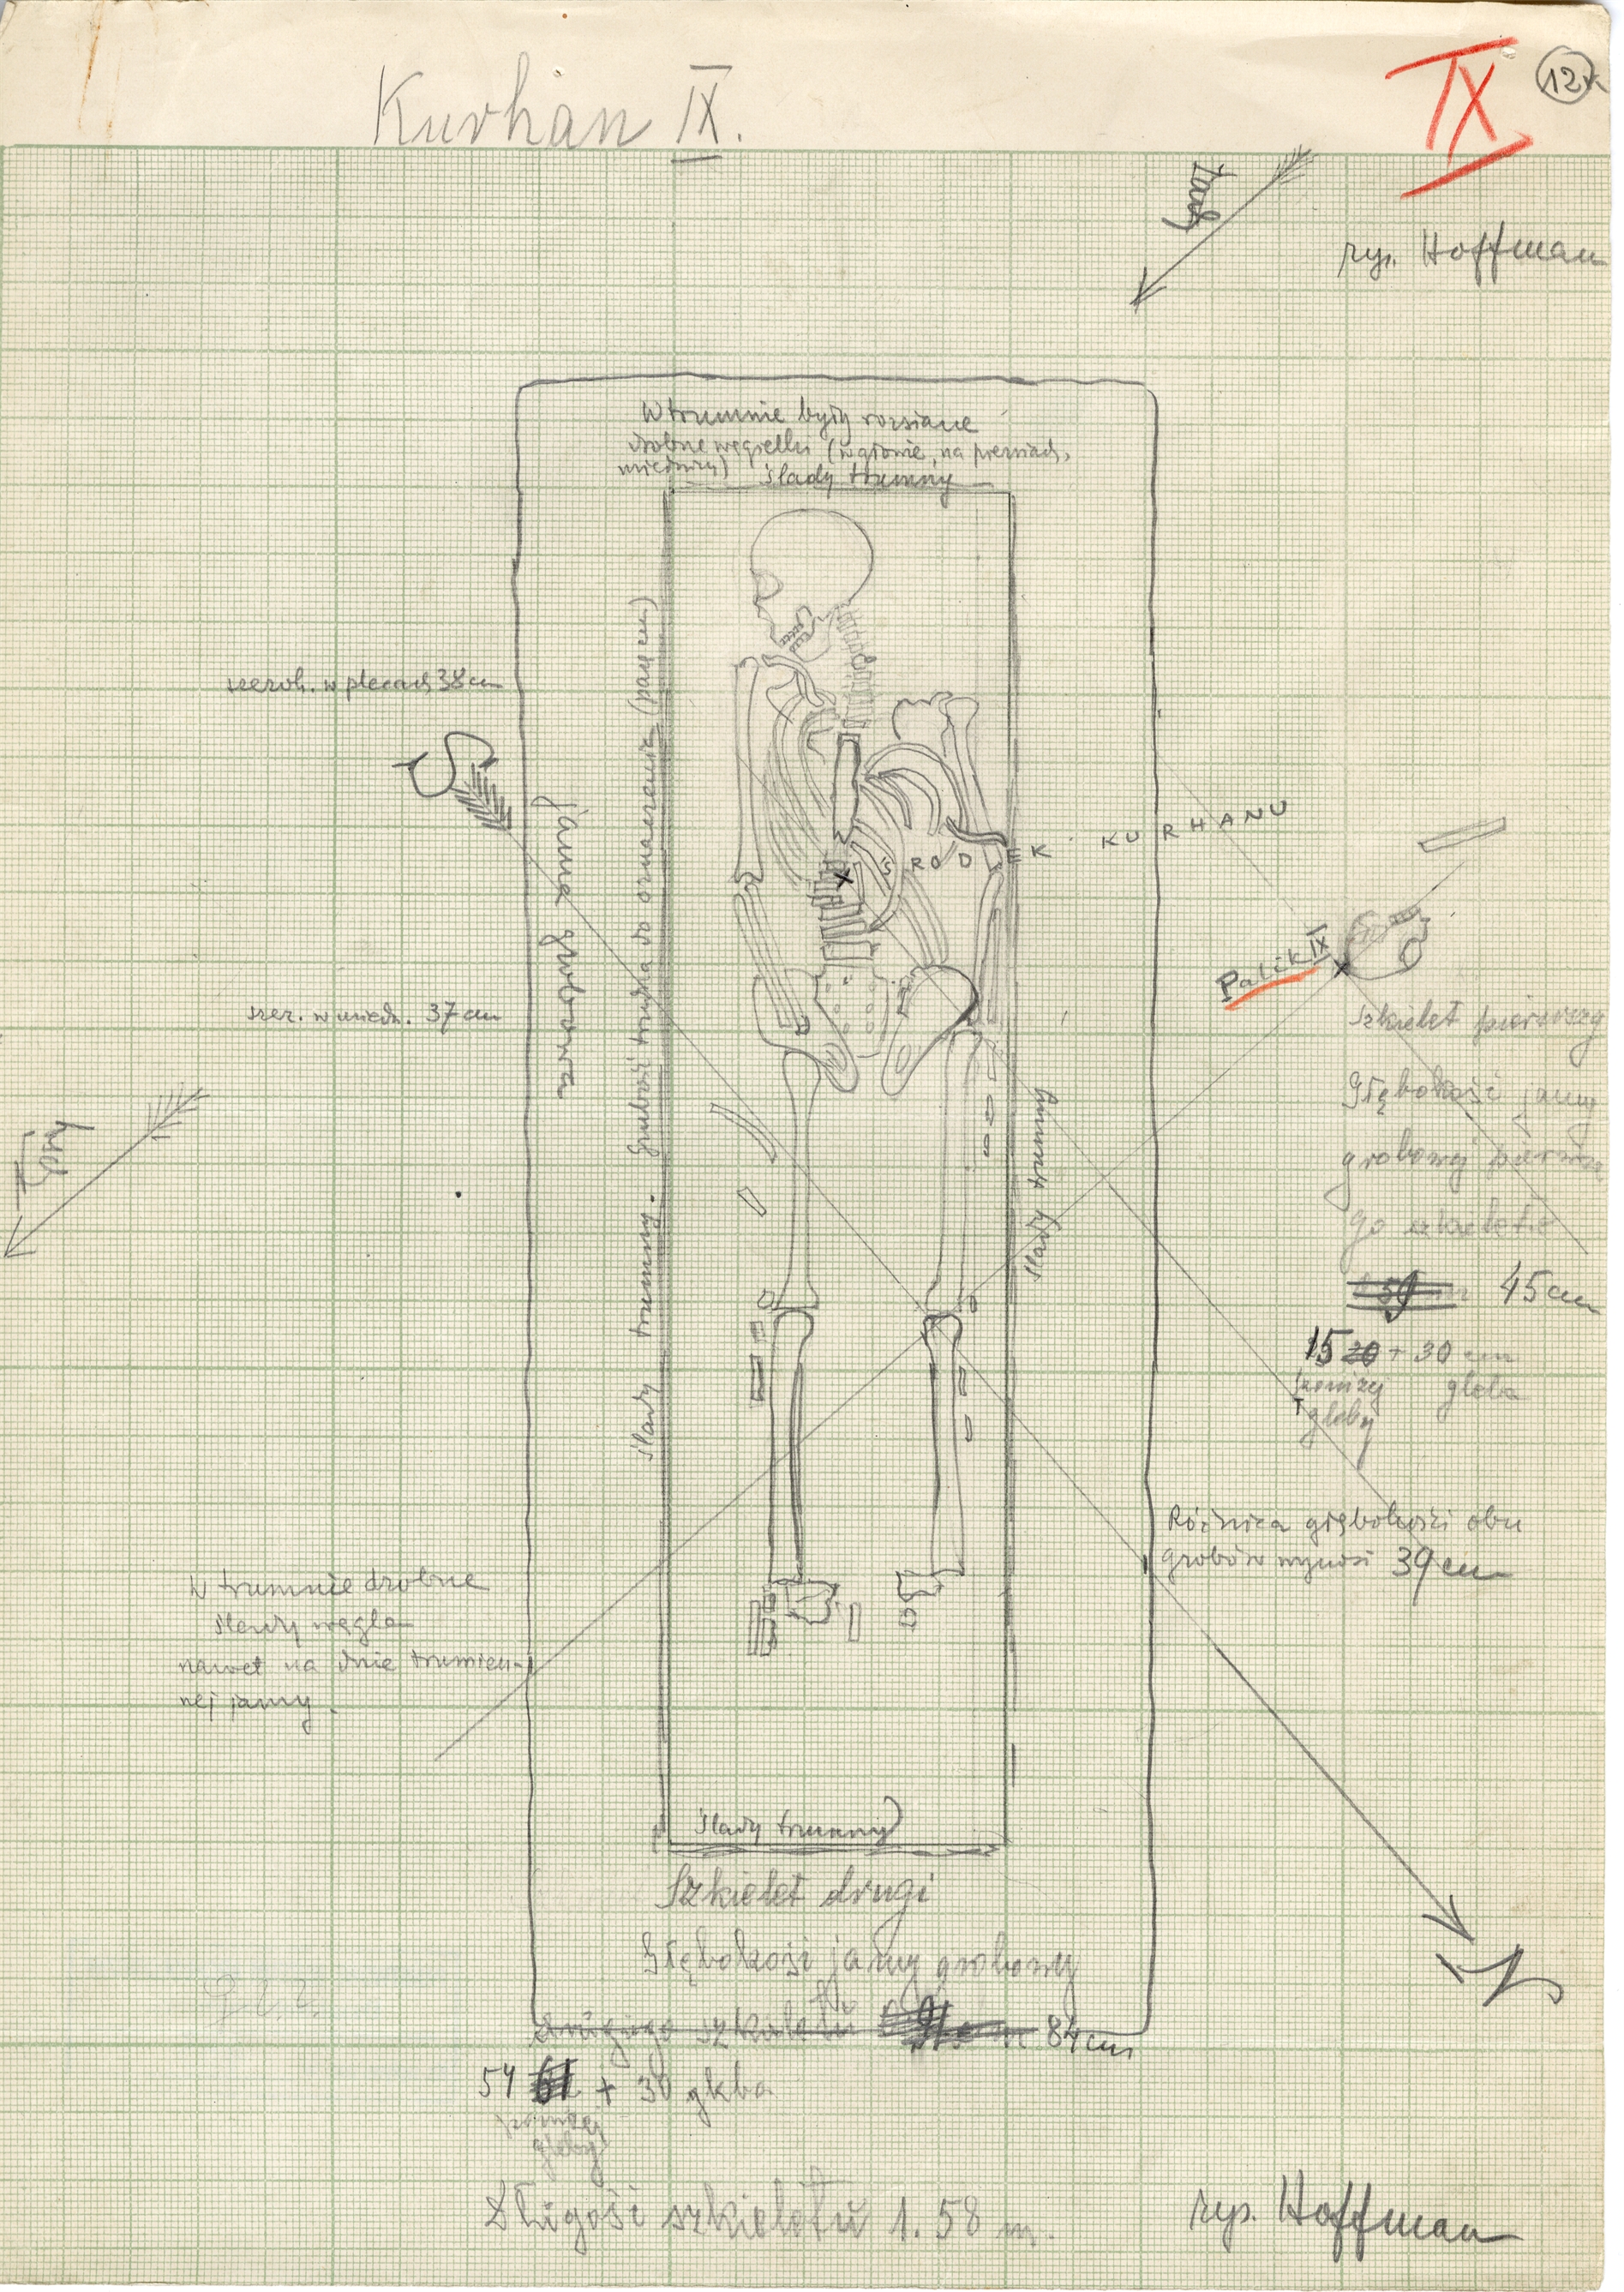 Kurhan IX.
IX
12
rys. Hoffman
W trumnie były rozsiane
drobne węgielki (w głowie, na piersiach,
miednicy)
ślady trumny
szerok. w plecach 38 cm
S
jama grobowa
ślady trumny. Grubość trudna do oznaczenia (parę cm)
ŚRODEK KURHANU
Palik IX
szkielet pierwszy
Głębokość jamy
grobowej pierwsze
go szkieletu
45 cm
15 20 + 30 cm
poniżej gleba
gleby
szer. w miedn. 37 cm
ślady trumny
Różnica głębokości obu
grobów wynosi 39 cm
W trumnie drobne
ślady węgla
nawet na dnie trumien-
nej jamy.
ślady trumny
N
Szkielet drugi
Głębokość jamy grobowej
drugiego szkieletu 84 cm
54 61 + 30 gleba
poniżej
gleby
Długość szkieletu 1.58 m.
rys. Hoffman